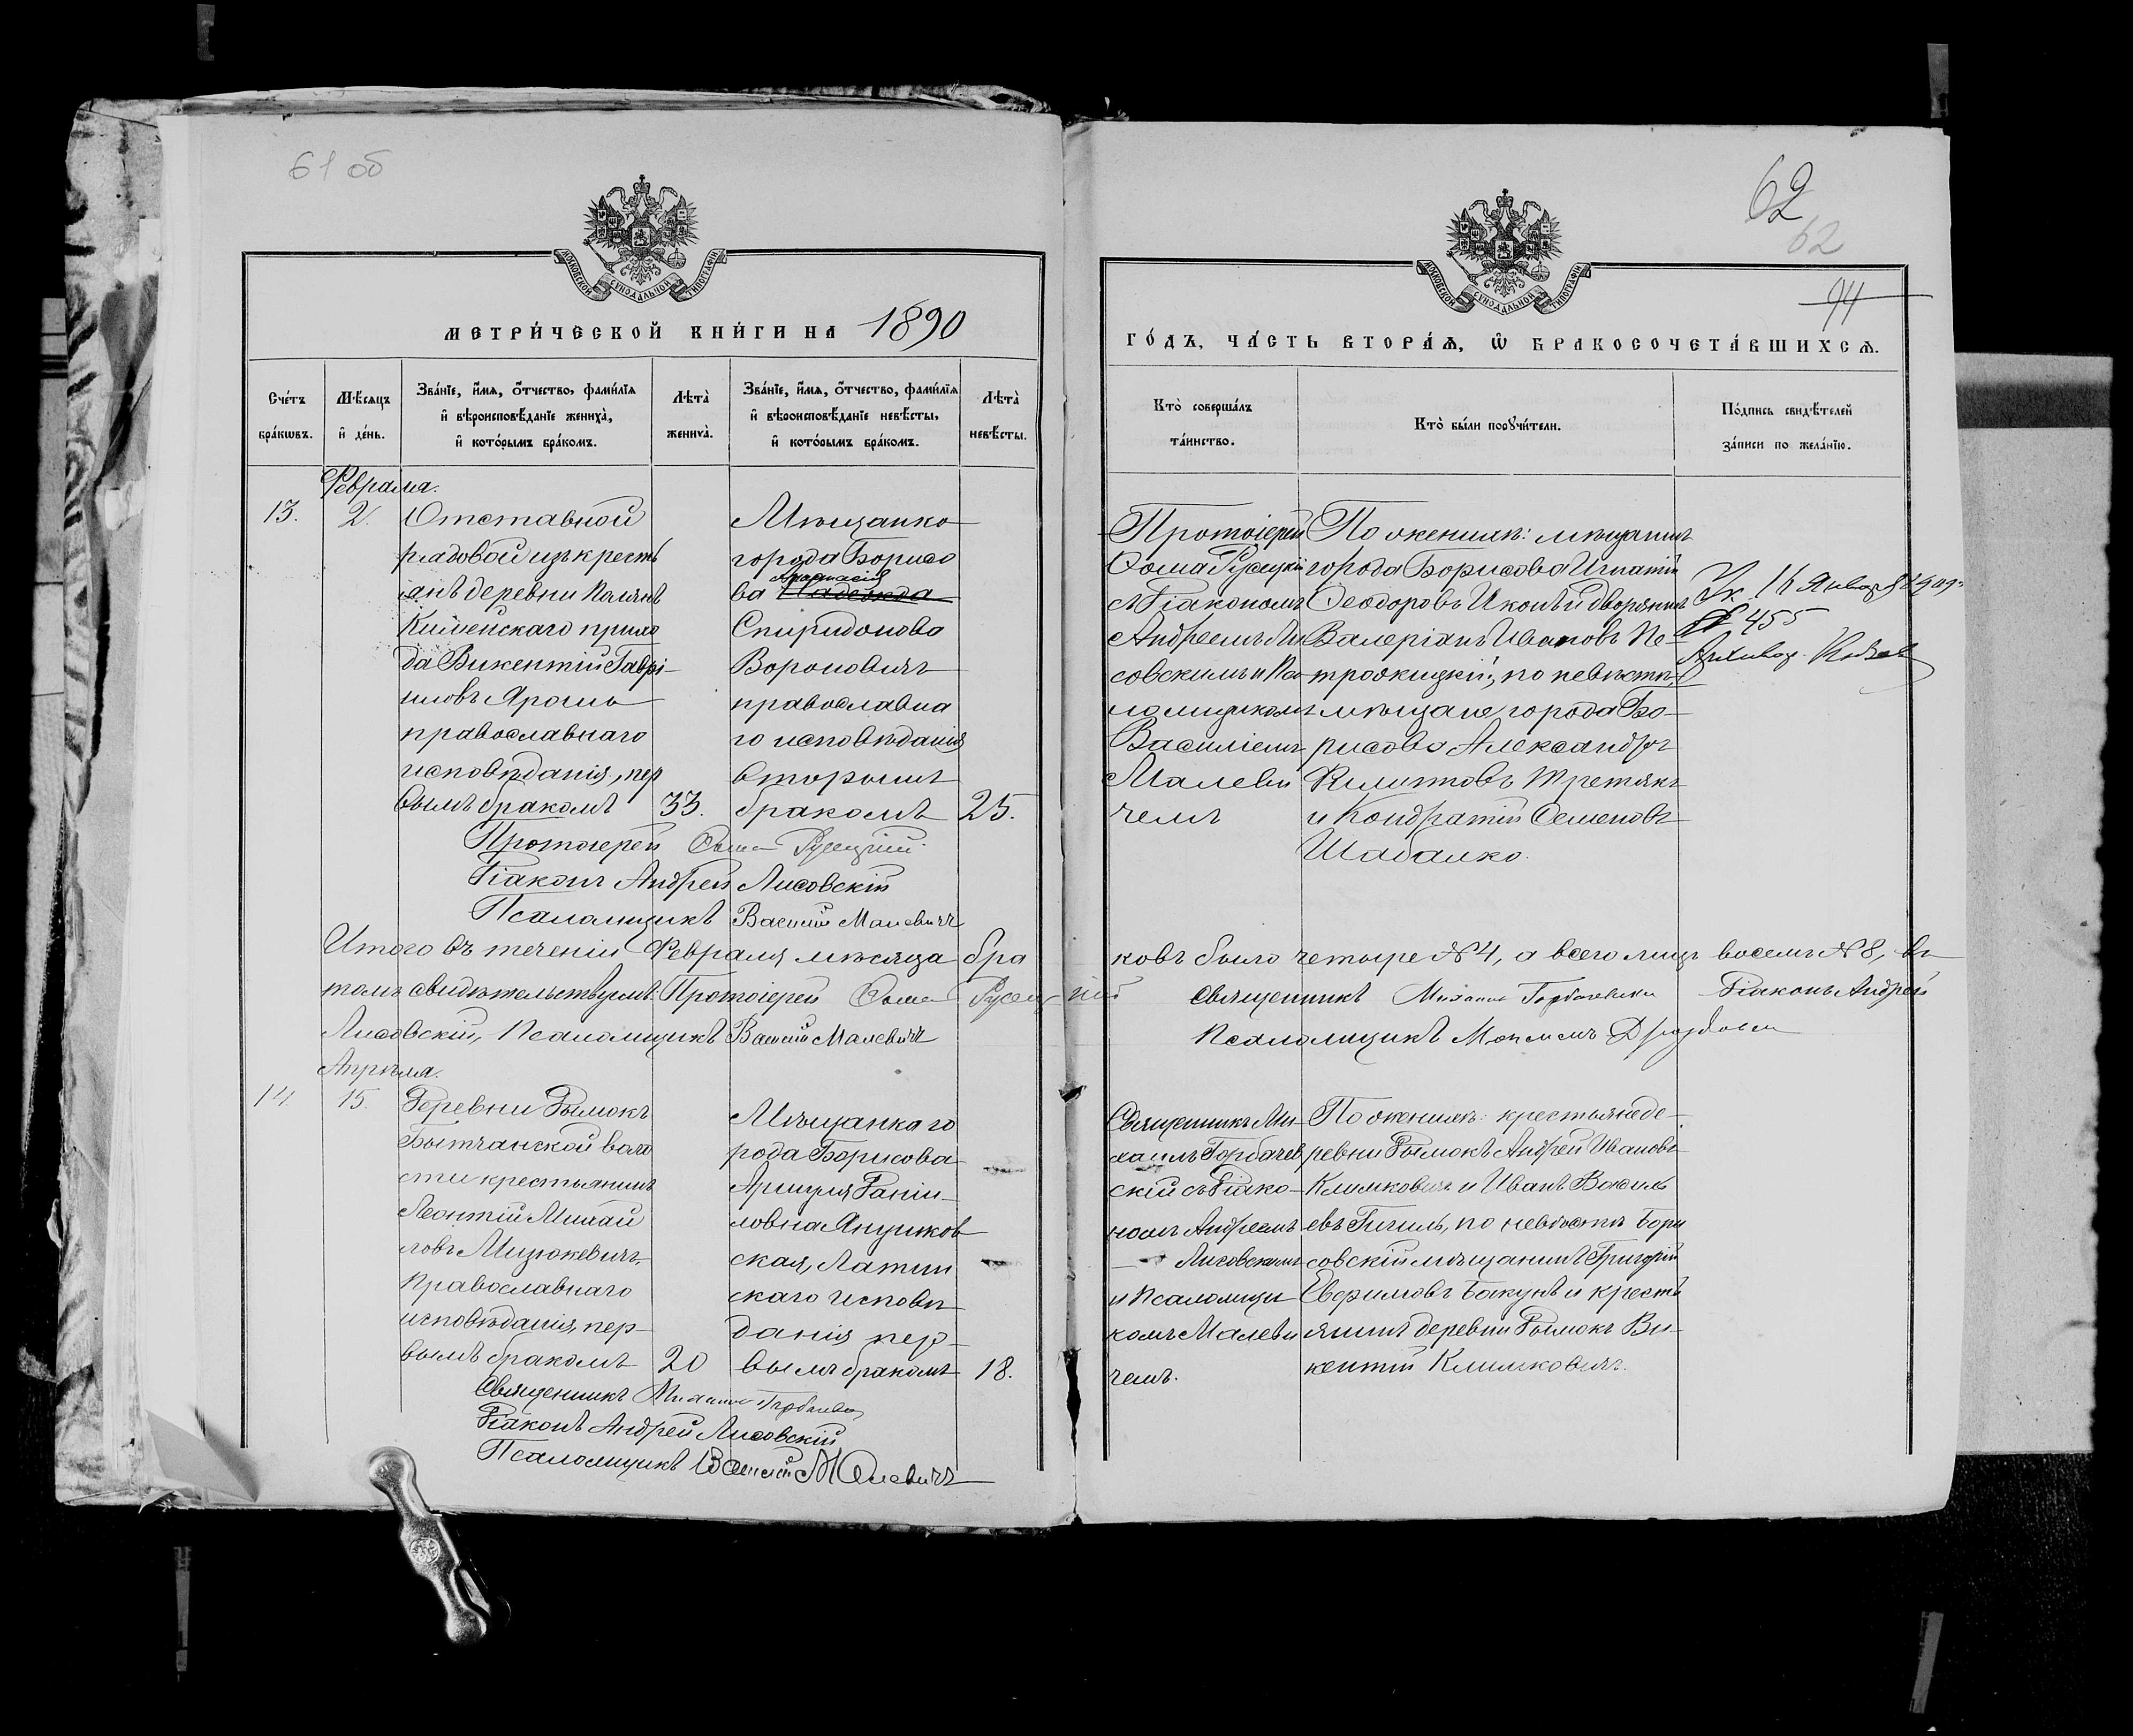 61 об
62
62
94
МОСКОВСКОЙ СУНОДАЛЬНОЙ ТИПОГРАФІИ
МЕТРИ́ЧЕСКОЙ КНИ́ГИ НА 1890
Сче́тъ бра́кѡвъ.
Мѣ́сяцъ и҆ де́нь.
Зва́нїе, и҆́мѧ, ѻ҆́тчество, фами́лїѧ и҆ вѣроисповѣ́данїе жениха̀, и҆ кото́рымъ бра́комъ.
Лѣта̀ жениха̀.
Зва́нїе, и҆́мѧ, ѻ҆́тчество, фами́лїѧ и҆ вѣроисповѣ́данїе невѣ́сты, и҆ кото́рымъ бра́комъ.
Лѣта̀ невѣ́сты.
Февраля.
13.
2.
Отставной
рядовой изъ кресть
янъ деревни
прихо
да Викентій Гаврі-
иловъ Ярошъ
православнаго
исповѣданія, пер
вымъ бракомъ
33.
Мѣщанка
города Борисо
ва Надежда
Спиридонова
Вороновичъ
православна
го исповѣданія
вторымъ
бракомъ
25.
Протоіерей Ѳома Русецкій
Діаконъ Андрей Лисовскій
Псаломщикъ Василій Малевичъ
Итого въ теченіи Февраля мѣсяца бра
томъ свидѣтельствуемъ: Протоіерей Ѳома Русецкій
Лисовскій, Псаломщикъ Василій Малевичъ
Апрѣля.
14.
15.
Деревни Дымокъ
Бытчанской воло
сти крестьянинъ
Леонтій Михай
ловъ Мицкевичъ,
Православнаго
исповѣданія, пер-
вымъ бракомъ
20
Мѣщанка го
рода Борисова
Даніи-
ловна
ская, Латин
скаго исповѣ
данія пер-
вымъ бракомъ
18.
Священникъ Михаилъ Горбачевскій
Діаконъ Андрей Лисовскій
Псаломщикъ Василій Малевичъ
МОСКОВСКОЙ СУНОДАЛЬНОЙ ТИПОГРАФІИ
ГО́ДЪ, ЧА́СТЬ ВТОРА́Ѧ, Ѡ҆ БРАКОСОЧЕТА́ВШИХСѦ.
Кто̀ соверша́лъ та́инство.
Кто̀ бы́ли порꙋчи́тели.
По́дпись свидѣ́телей за́писи по жела́нїю.
Протоіерей
Ѳома Русецкій
съ Діакономъ
Андреемъ Ли
совскимъ и Пса
ломщикомъ
Василіемъ
Малеви
чемъ
По женихѣ: мѣщанинъ
города Борисова Игнатій
Ѳеодоровъ и дворянинъ
Валеріанъ Ивановъ Пе-
тражицкій, по невѣстѣ,
мѣщане города Бо-
рисова Александръ
Филиповъ Третякъ
и Кондратій Семеновъ
Шабалко.
Ук. 16 Января
№ 455
Архивар.
ковъ было четыре № 4, а всего лицъ восемь № 8, въ
Священникъ Михаилъ Горбачевскій Діаконъ Андрей
Псаломщикъ
Священникъ Ми-
хаилъ Горбачев
скій съ Діако-
номъ Андреемъ
Лисовскимъ
и Псаломщи
комъ Малеви
чемъ.
По женихѣ: крестьяне де-
ревни Дымокъ Андрей Ивановъ
Климковичъ и Иванъ Василь
евъ Гичиль, по невѣстѣ Бори
совскій мѣщанинъ Григорій
Евфимовъ Бакунъ и кресть
янинъ деревни Дымокъ Ви-
кентій Климковичъ.